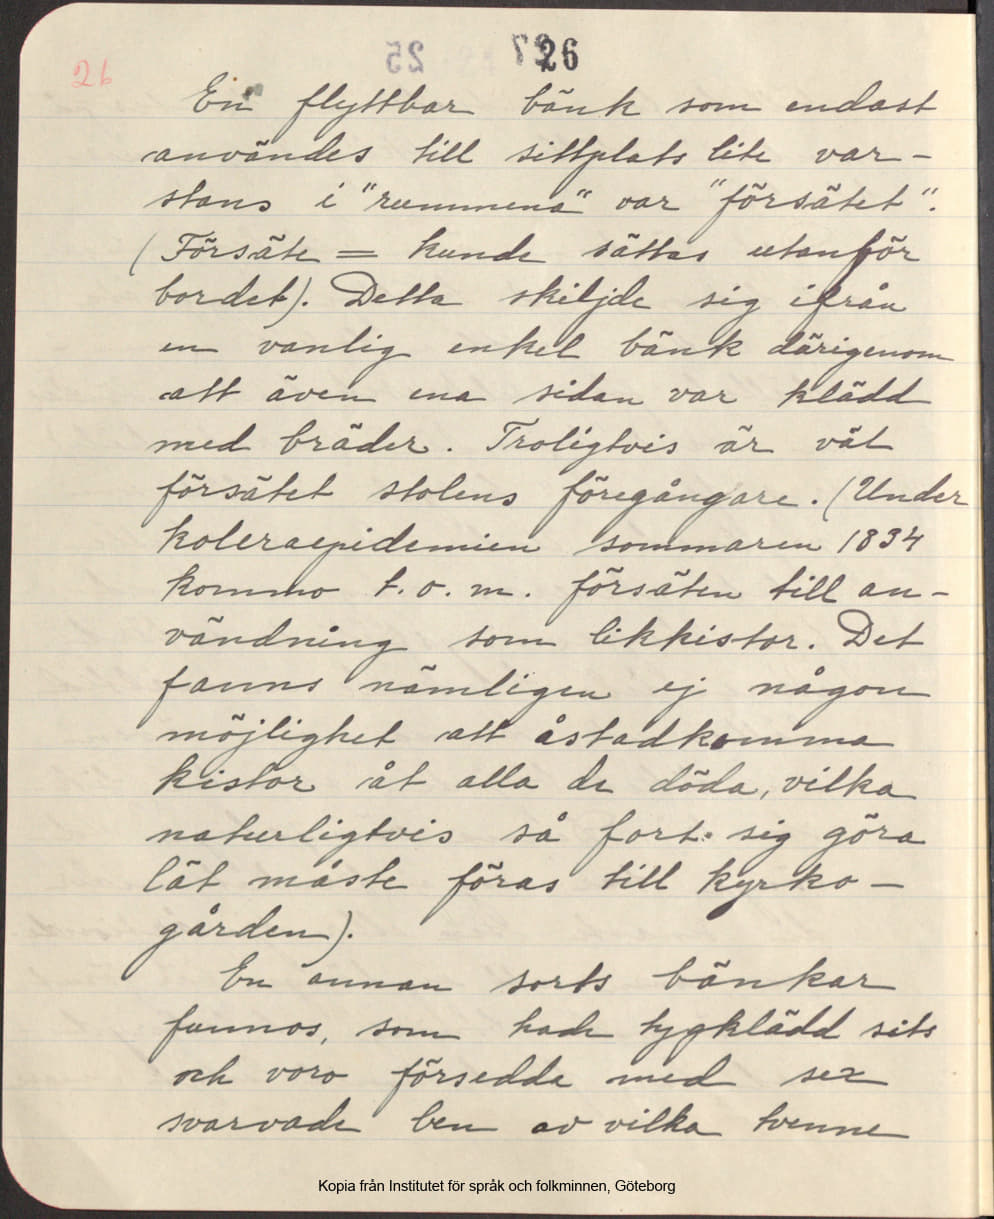 26
25
26
En flyttbar bänk som endast
användes till sittplats lite var-
stans i "rummena" var "försätet".
(Försäte = kunde sättas utanför
bordet). Detta skiljde sig ifrån
en vanlig enkel bänk därigenom
att även ena sidan var klädd
med bräder. Troligtvis är väl
försätet stolens föregångare. (Under
koleraepidemien sommaren 1834
kommo t.o.m. försäten till an-
vändning som likkistor. Det
fanns nämligen ej någon
möjlighet att åstadkomma
kistor åt alla de döda, vilka
naturligtvis så fort sig göra
lät måste föras till kyrko-
gården).
En annan sorts bänkar
funnos, som hade tygklädd sits
och voro försedda med sex
svarvade ben av vilka tvenne
Kopia från Institutet för språk och folkminnen, Göteborg